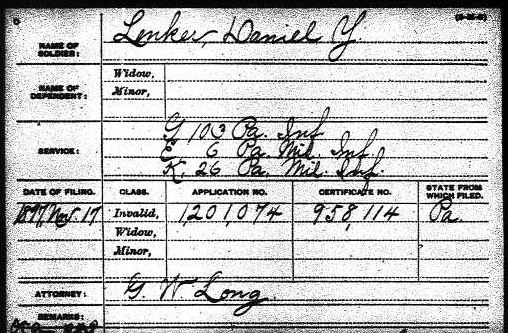 (3-20-5)
NAME OF SOLDIER: Lenker, Daniel Y.
NAME OF DEPENDENT: Widow,
Minor,
SERVICE: G 103 Pa. Inf
E 6 Pa. Mil. Inf.
K, 26 Pa. Mil. Inf.
DATE OF FILING. CLASS. APPLICATION NO. CERTIFICATE NO. STATE FROM WHICH FILED.
1897, Nov. 17 Invalid, 1,201,074 958,114 Pa.
Widow,
Minor,
ATTORNEY: G. W. Long
REMARKS: